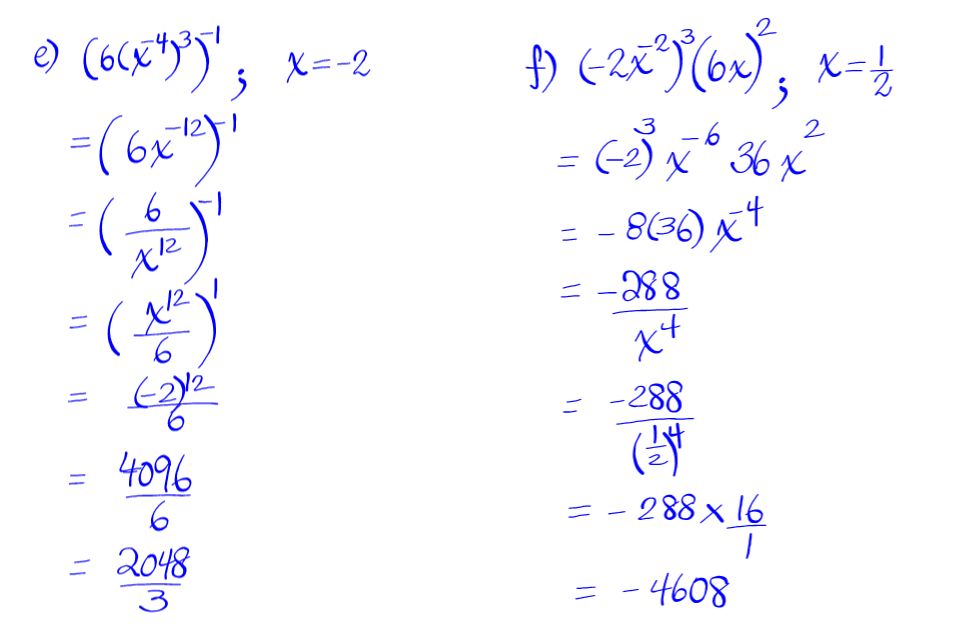 e) (6(x⁻⁴)³)⁻¹ ; x=-2
= (6x⁻¹²)⁻¹
= (6/x¹²)⁻¹
= (x¹²/6)¹
= (-2)¹²/6
= 4096/6
= 2048/3
f) (-2x⁻²)³(6x)² ; x=1/2
= (-2)³ x⁻⁶ 36 x²
= - 8(36) x⁻⁴
= -288/x⁴
= -288/(1/2)⁴
= - 288 × 16/1
= - 4608